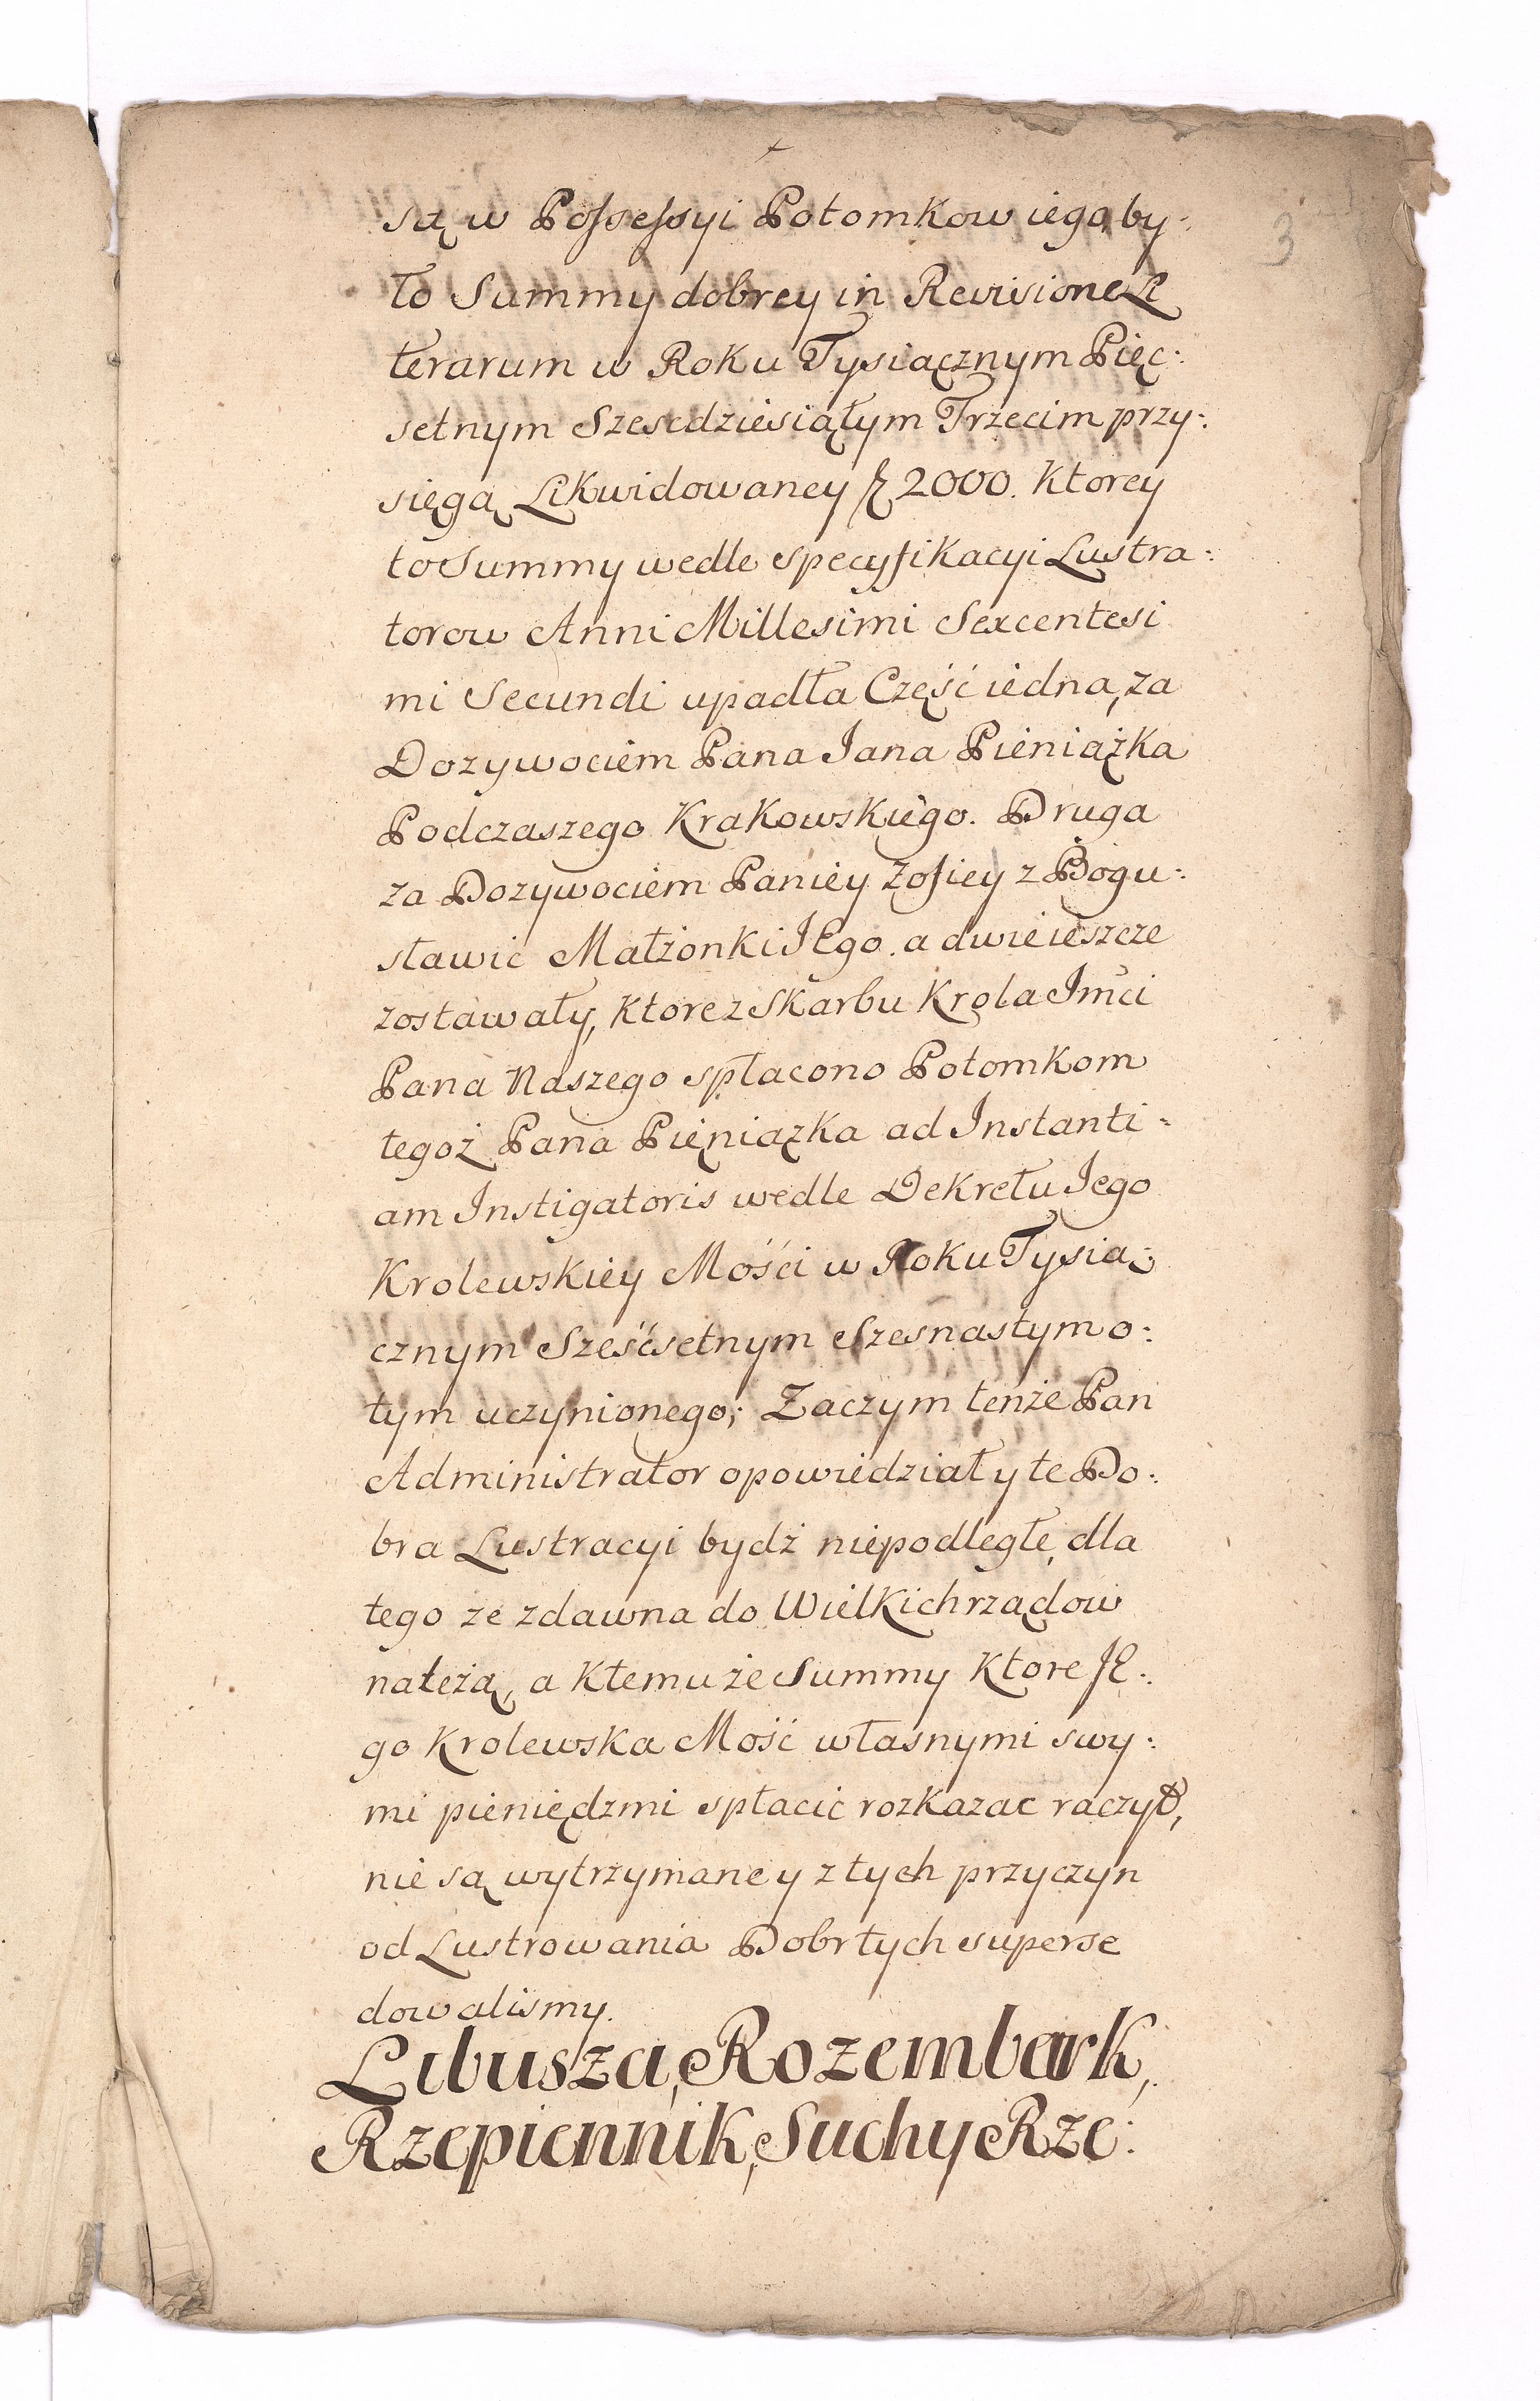 3
są w Possessyi Potomkow iego, by:
ło Summy dobrey in Revisione Li
terarum w Roku Tysiącznym Pięc:
setnym Szescdziesiątym Trzecim przy:
sięgą Likwidowaney f 2000. Ktorey
to Summy wedle specyfikacyi Lustra:
torow Anni Millesimi Sexcentesi
mi Secundi upadła Część iedna, za
Dozywociem Pana Jana Pieniążka
Podczaszego Krakowskiego. Druga
za Dozywociem Paniey Zofiey z Bogu:
sławic Małżonki JEgo. a dwie ieszcze
zostawały, Ktore z Skarbu Krola Jmci
Pana Naszego spłacono Potomkom
tegoż Pana Pięniązka ad Instanti=
am Instigatoris wedle Dekretu Jego
Krolewskiey Mości w Roku Tysią:
cznym Sześćsetnym Szesnastym o:
tym uczynionego; Zaczym tenże Pan
Administrator opowiedział y te Do:
bra Lustracyi bydź niepodległe, dla
tego ze zdawna do Wielkich rządow
należą, a Ktemu że Summy Ktore JE:
go Krolewska Mość własnymi swy:
mi pieniędzmi spłacić rozkazac raczył,
nie są wytrzymane y z tych przyczyn
od Lustrowania Dobr tych superse
dowalismy.
Libusza, Rozembark,
Rzepiennik, Suchy Rze: